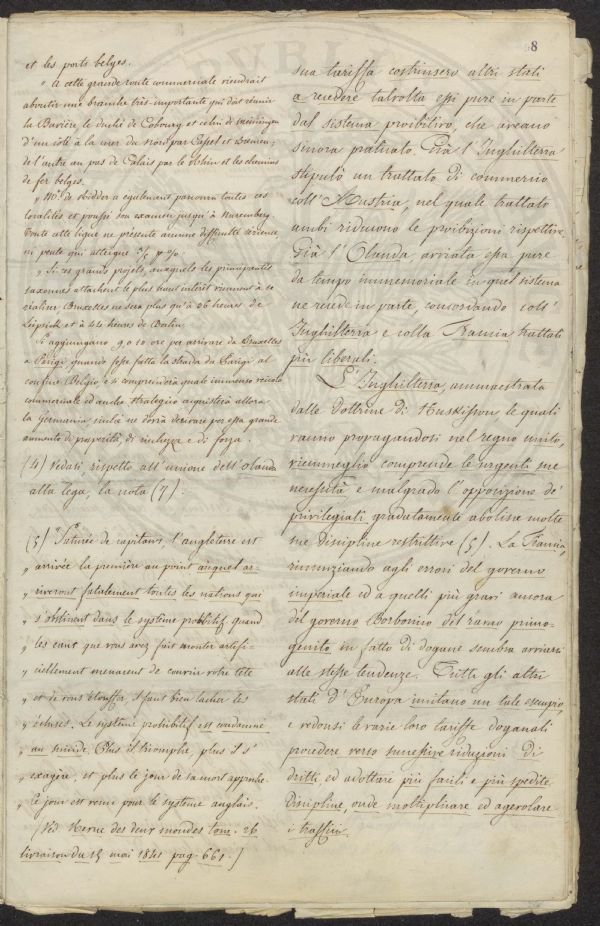 8
et les ports belges.
" A cette grande route commerciale viendrait
aboutir une branche très-importante qui doit réunir
la Bavière, le duché de Cobourg et celui de Meiningen
d'un côté à la mer du nord par Cassel et Bremen;
de l'autre au pas de Calais par le Rhin et les chemins
de fer belges.
" Mr. de Ridder a également parcouru toutes ces
localités et poussé son examen jusqu'à Nuremberg.
Toute cette ligne ne présente aucune difficulté sérieuse,
ni pente qui atteigne
" Si ces grands projets, auxquels les principautés
saxonnes attachent le plus haut intérêt viennent à se
réaliser, Bruxelles ne sera plus qu'à 26 heures de
Leipsick et à 44 heures de Berlin.
Si aggiungano 9 o 10 ore per arrivare da Bruxelles
a Parigi, quando fosse fatta la strada da Parigi al
confine Belgio, e si comprenderà quale immenso veicolo
commerciale ed anche strategico acquisterà allora
la Germania, e ne dovrà derivare per essa grande
aumento di prosperità, di richezze e di forza.
(4) Vedasi rispetto all'unione dell'olanda
alla lega, la nota (7).
(5) " Saturée de capitaux l'angleterre est
" arrivée la première au point auquel ar-
" riveront fatalement toutes les nations qui
" s'obstinent dans le système prohibitif quand
" les eaux que vous avez fait monter artifi-
" ciellement menacent de couvrir votre tête
" et de vous étouffer, il faut bien lacher les
" écluses. Le système prohibitif est condamné
" au suicide. Plus il triomphe, plus il s'
" exagère, et plus le jour de sa mort approche.
" Le jour est venu pour le système anglais.
(Ved. Revue des deux mondes tom. 26
livraison du 15 mai 1841 pag. 661.)
sua tariffa costrinsero altri stati
a recedere talvolta essi pure in parte
dal sistema proibitivo, che aveano
sinora praticato. Già l'Inghilterra
stipulò un trattato di commercio
coll'Austria, nel quale trattato
ambi riducono le proibizioni rispettive.
Già l'Olanda, arrivata essa pure
da tempo immemoriale in quel sistema
ne recede in parte, concordando coll'
Inghilterra e colla Francia trattati
più liberali.
L'Inghilterra, ammaestrata
dalle dottrine di Huskisson le quali
vanno propagandosi nel regno unito,
viemmeglio comprende le urgenti sue
necessità e malgrado l'opposizione de'
privilegiati gradatamente abolisce molte
sue discipline restrittive (5). La Francia,
rinunziando agli errori del governo
imperiale ed a quelli più gravi ancora
del governo Borbonico del ramo primo-
genito, in fatto di dogane sembra avviarsi
alle stesse tendenze. Tutti gli altri
stati d'Europa imitano un tale esempio,
e vedonsi le varie loro tariffe doganali
procedere verso successive riduzioni di
dritti, ed adottare più facili e più spedite
discipline, onde moltiplicare ed agevolare
i traffici.